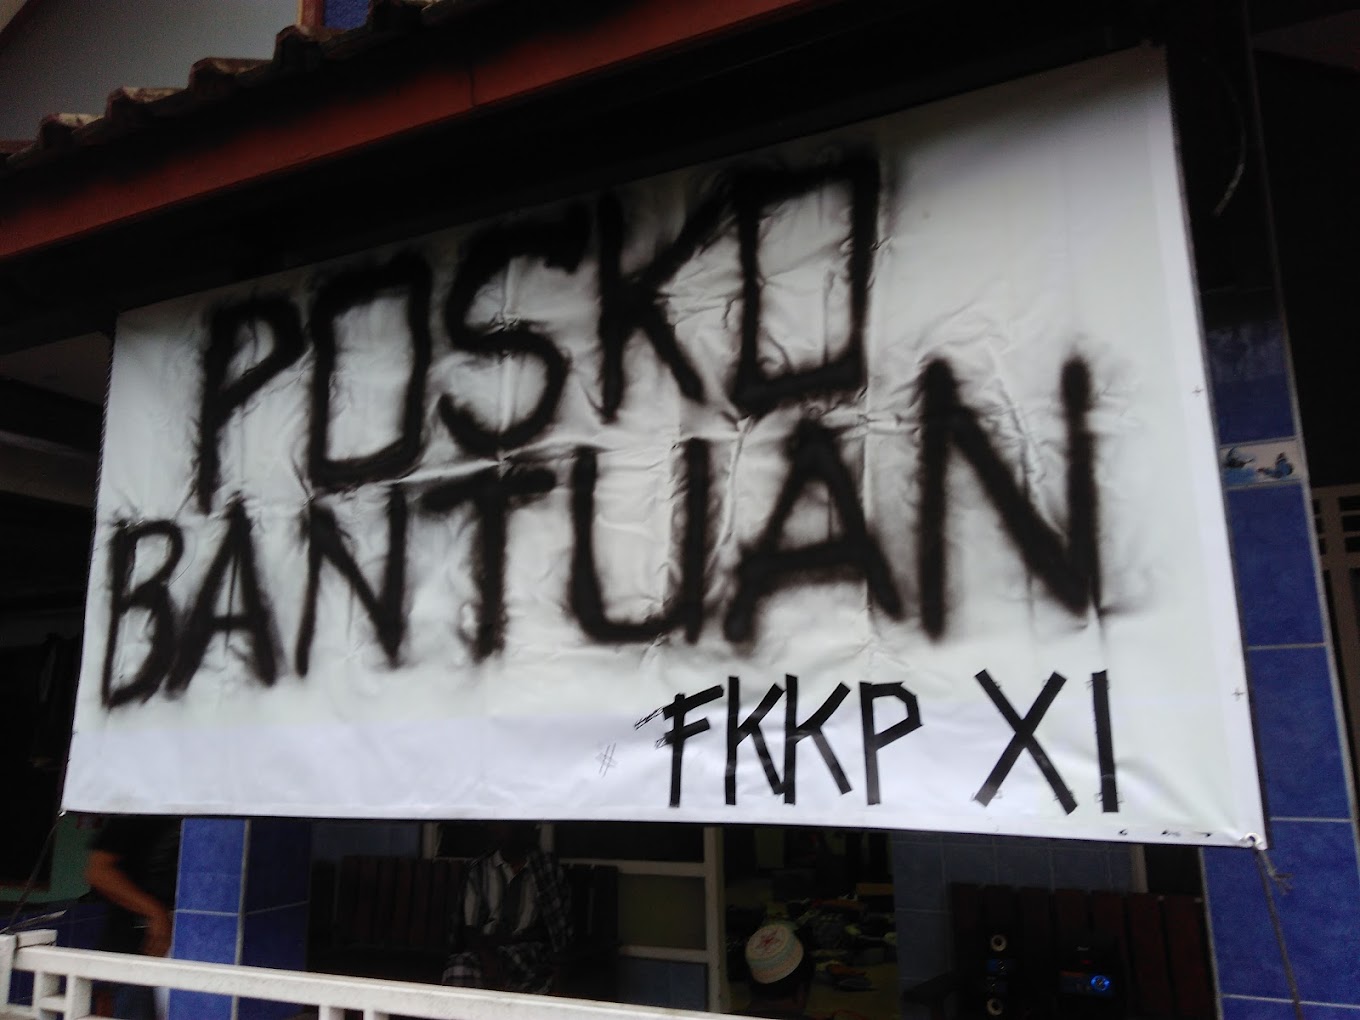 POSKO
BANTUAN
# FKKP XI